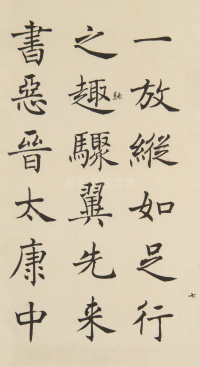 一放縱如足行
之趣驟翼先来
書惡晉太康中
七